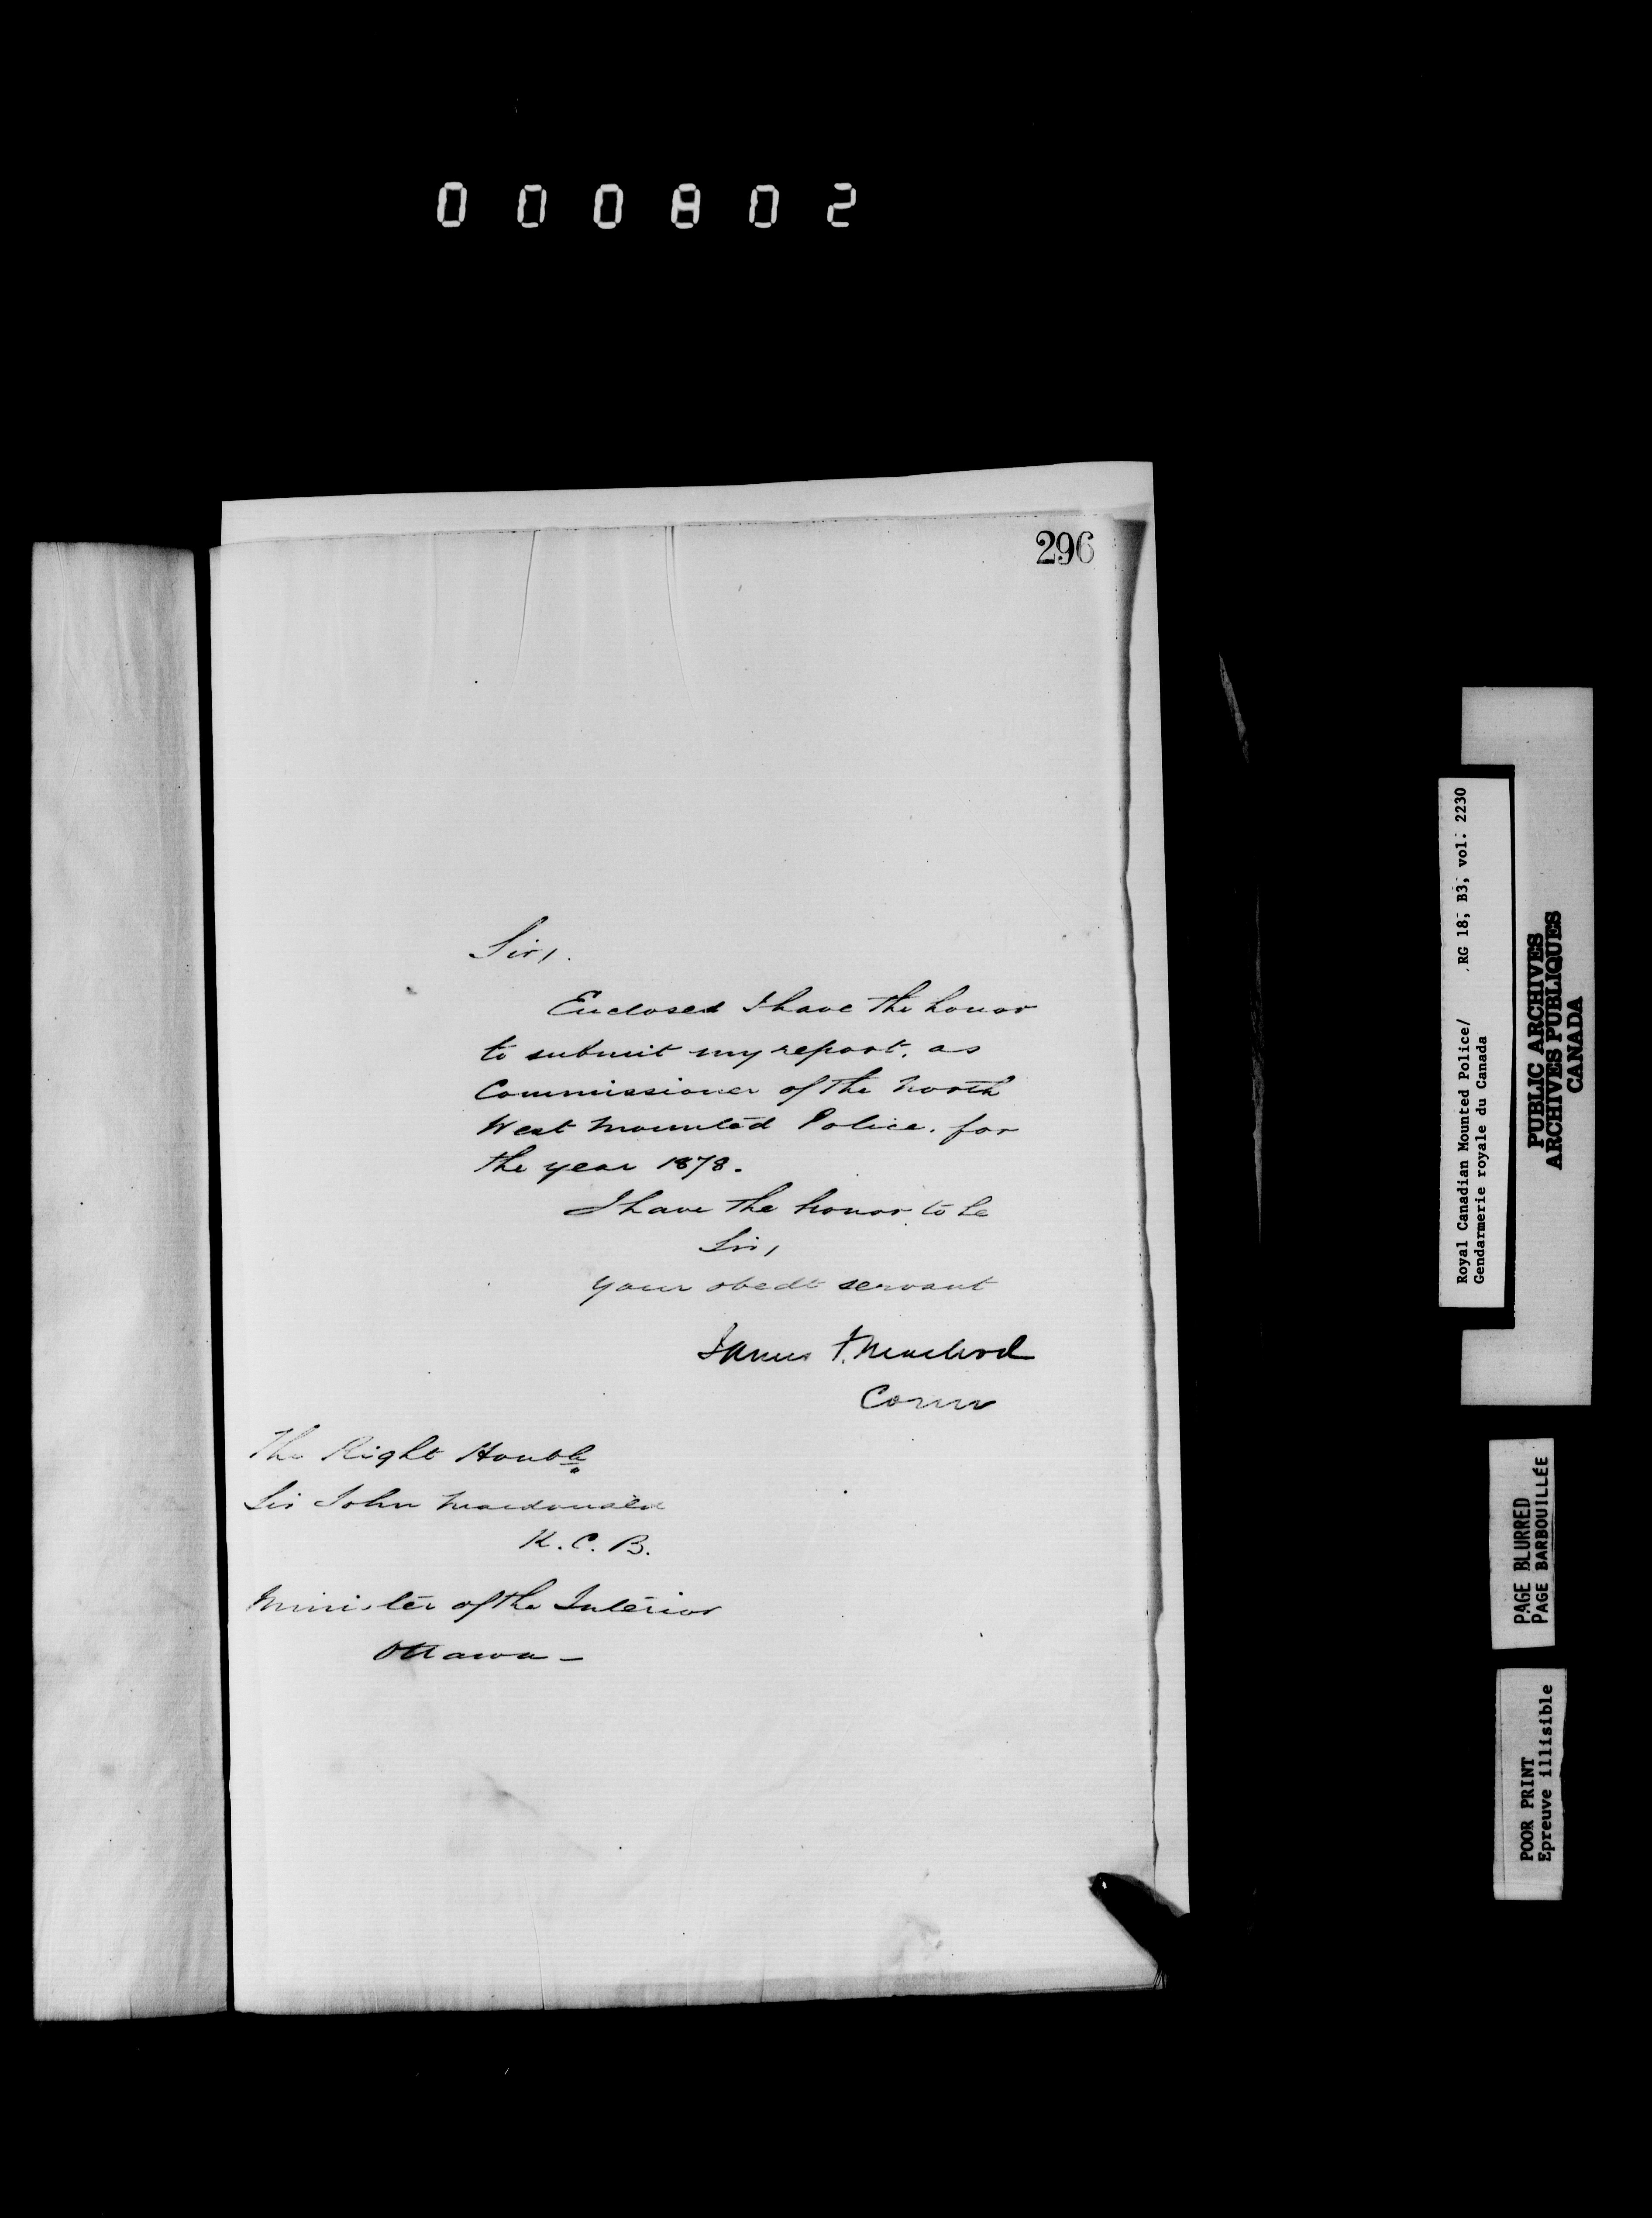 000802
296
Sir,.
Enclosed I have the honor
to submit my report, as
Commissioner of the North
West Mounted Police. for
the year 1878.
I have the honor to be
Sir,
your obedt servant
James F. Macleod
Comr
The Right Honble
Sir John Macdonald
K.C.B.
Minister of the Interior
Ottawa —
Royal Canadian Mounted Police/ RG 18, B3, vol. 2230
Gendarmerie royale du Canada
PUBLIC ARCHIVES
ARCHIVES PUBLIQUES
CANADA
PAGE BLURRED
PAGE BARBOUILLÉE
POOR PRINT
Epreuve illisible